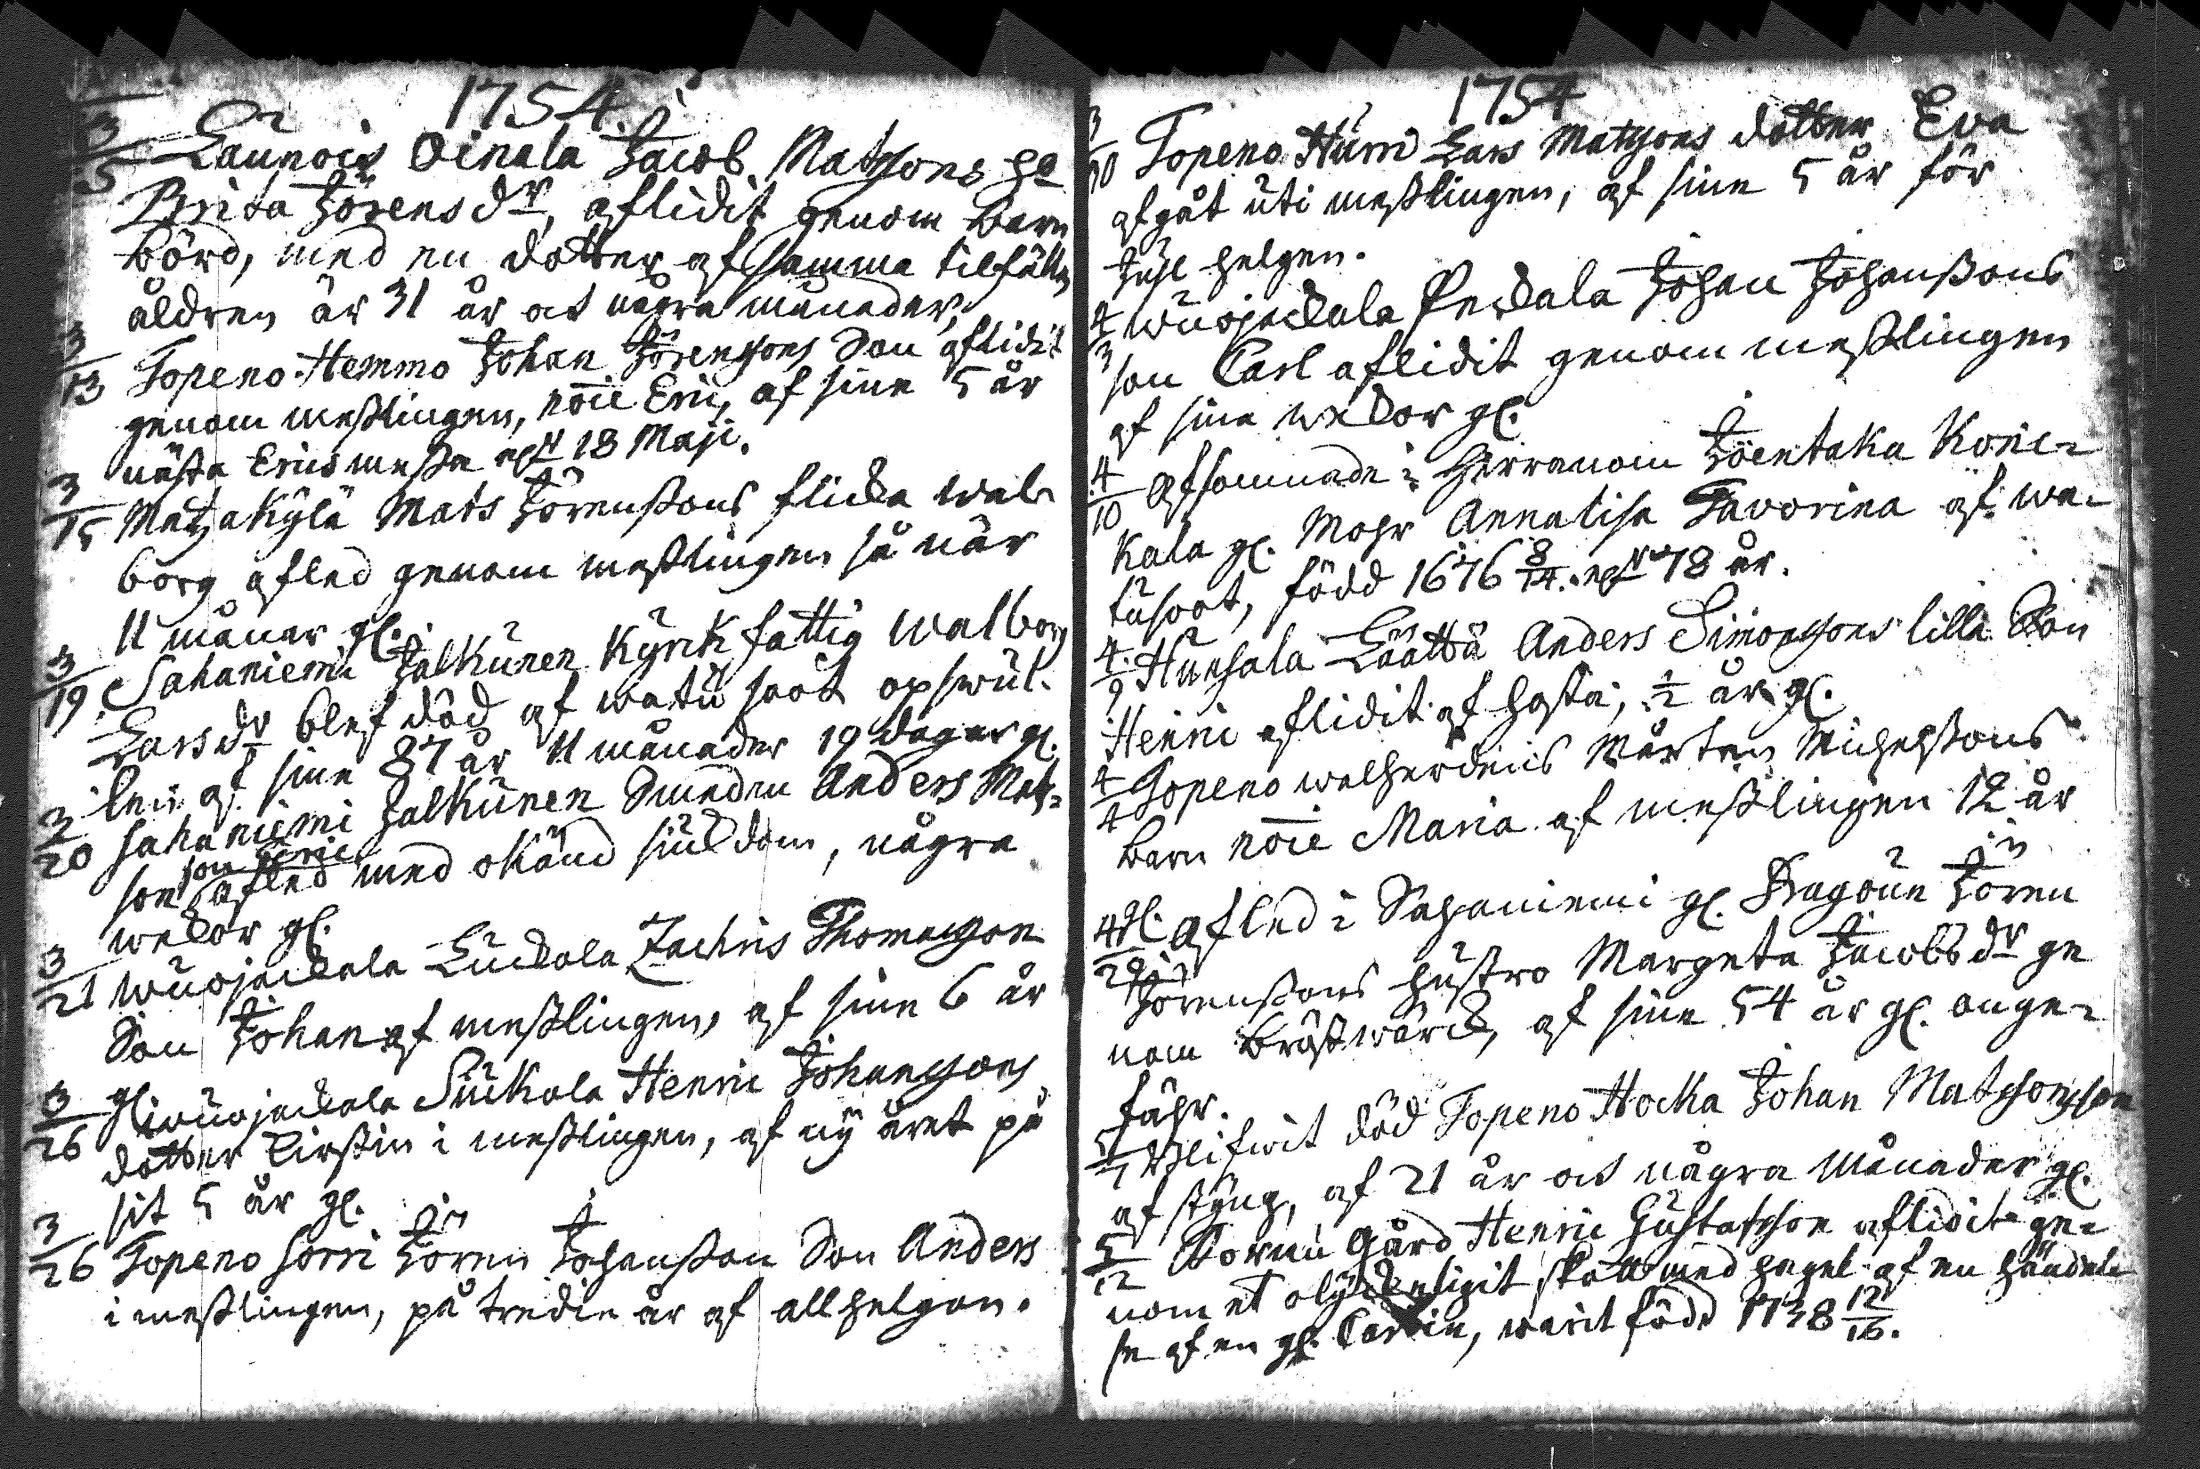 1754.
3/5 Launois Oinala Jacob Matssons ho
Brita Jörens dr, aflidit genom barn
börd, med en dotter af samma tilfälle
åldren är 31 år oct några månader,
3/13 Topeno Hemmo Johan Jörenssons Son aflidit
genom messlingen, noïe Eric, af sine 5 år
nästa Ericsmessa 18 Maji.
3/15 Matzakylä Mats Jörenssons flicka Wal
borg afled genom messlingen så när
11 månar gl.
3/19 Sahaniemi Jalkunen Kyrck fattig Walborg
Lars dr blef död af watu soot opswul
len af sine 87 år 11 månader 19 dagar gl.
3/20 Sahaniemi Jalkunen Smeden Anders Mats=
son son Henric afled med okänd siukdom, några
wekor gl.
3/21 Wuojackala Luckola Zachris Thomasson
Son Johan af messlingen, af sine 6 år
gl.
3/26 Wuojackala Suckola Henric Johanssons
dotter Cirstin i messlingen, af ny året på
sit 5 år gl.
3/26 Topeno Sorri Jören Johansson Son Anders
i messlingen, på tredie år af allhelgon.
1754
3/10 Topeno Hurri Lars Matssons dotter Eva
afgåt uti messlingen, af sine 5 år för
Jul helgen.
4/3 Wuojackala Peckala Johan Johanssons
son Carl aflidit genom messlingen
af sina wekor gl.
4/10 Afsomnade i Herranom Jöentaka Koric=
kala gl. Mohr Annalisa Favorina af wa=
tusoot, född 1676 8/14. 78 år.
4/9 Hunsala Läättä Anders Simonssons lilla Son
Henric aflidit af hosta, 1/2 år gl.
4/4 Topeno walherdens Mårten Michelssons
barn noïe Maria af messlingen 12 år
gl.
4/29 Afled i Sahaniemi gl. Dragoun Jören
Jörenssons hustro Margeta Jacobs dr ge
nom bröstwärck, af sine 54 år gl. onge=
fähr.
5/7 Blifwit död Topeno Hocka Johan Matssons son
af styng, af 21 år oct några Månader gl.
5/12 Tornu Gård Henric Gustafsson aflidit ge=
nom et olyckeligit skott med hagel af en händel=
se af en gl. Carbin, warit född 1738 12/16.